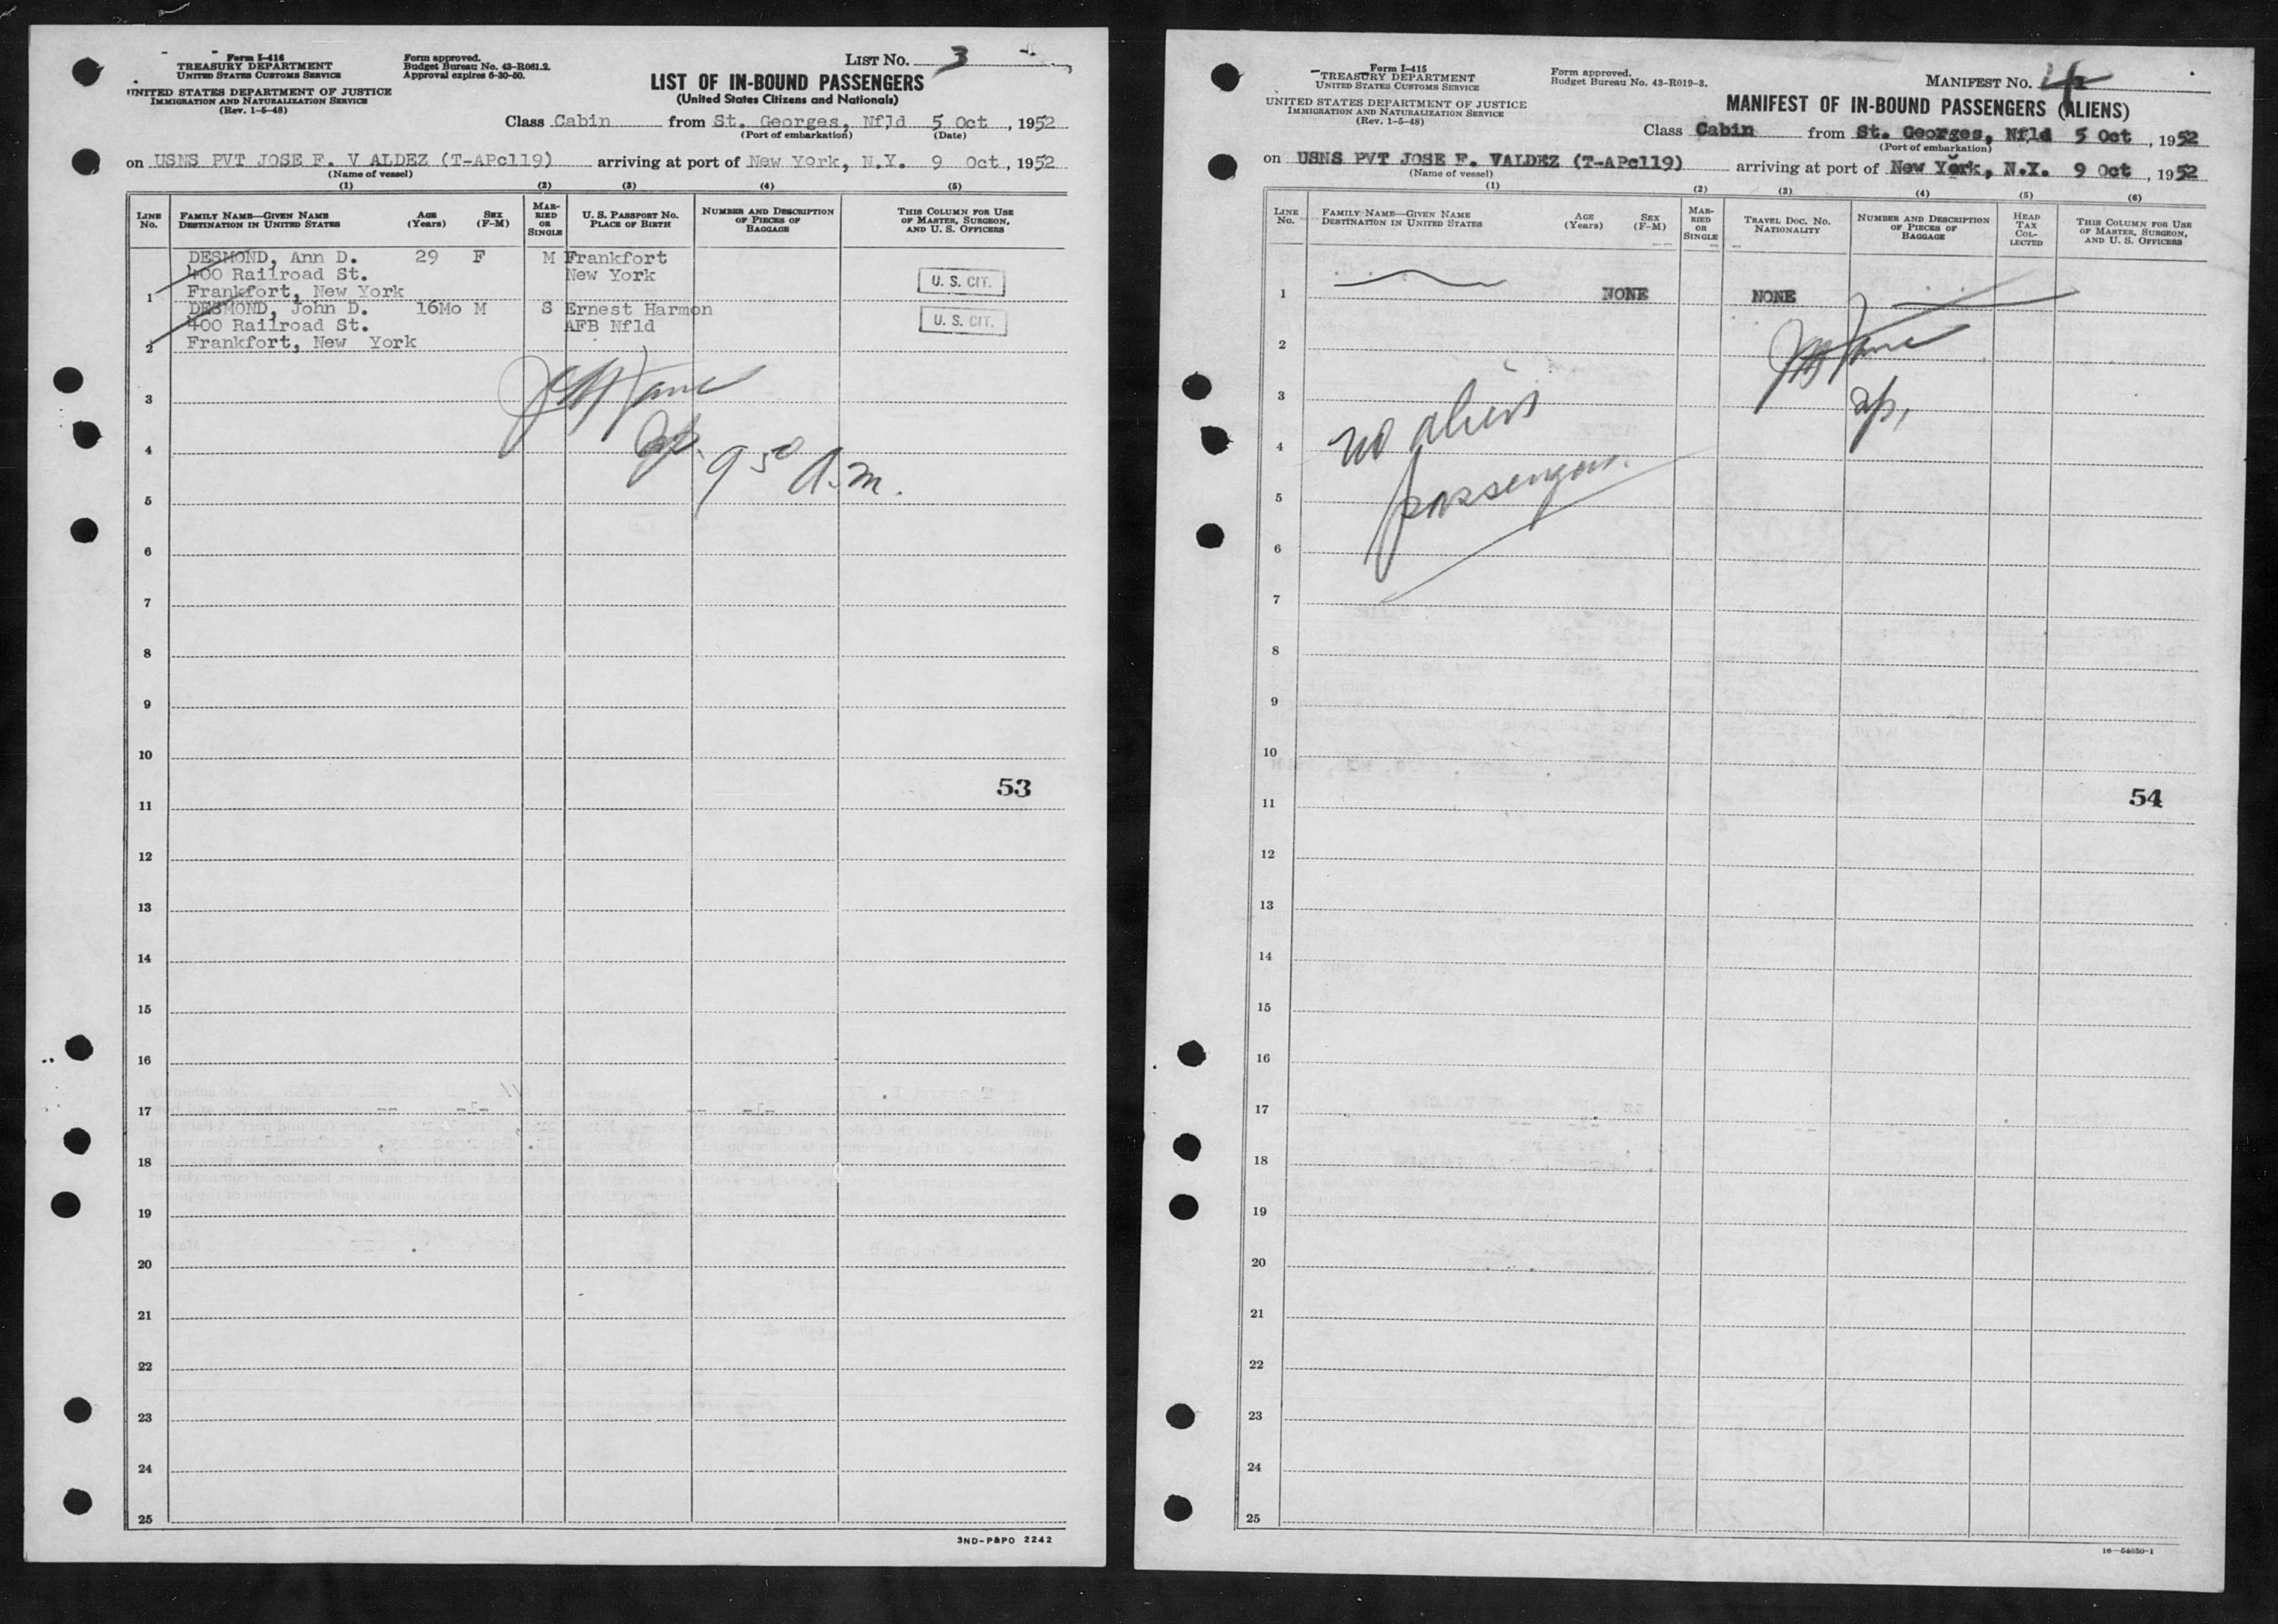 Form I-416
TREASURY DEPARTMENT
UNITED STATES CUSTOMS SERVICE
UNITED STATES DEPARTMENT OF JUSTICE
IMMIGRATION AND NATURALIZATION SERVICE
(Rev. 1-5-48)
Form approved.
Budget Bureau No. 43-R061.2.
Approval expires 6-30-50.
LIST NO. 3
LIST OF IN-BOUND PASSENGERS
(United States Citizens and Nationals)
Class Cabin from St. Georges, Nfld 5 Oct, 1952
(Port of embarkation) (Date)
on USNS PVT JOSE F. V ALDEZ (T-APc119) arriving at port of New York, N.Y. 9 Oct, 1952
(Name of vessel)
(1) (2) (3) (4) (5)
LINE NO. FAMILY NAME—GIVEN NAME DESTINATION IN UNITED STATES AGE (Years) SEX (F-M) MARRIED OR SINGLE U. S. PASSPORT NO. PLACE OF BIRTH NUMBER AND DESCRIPTION OF PIECES OF BAGGAGE THIS COLUMN FOR USE OF MASTER, SURGEON, AND U. S. OFFICERS
DESMOND, Ann D. 29 F M Frankfort
400 Railroad St. New York U. S. CIT.
1 Frankfort, New York
DESMOND, John D. 16Mo M S Ernest Harmon
400 Railroad St. AFB Nfld U. S. CIT.
2 Frankfort, New York
3
4
9 50 A.m.
5
6
7
8
9
10
53
11
12
13
14
15
16
17
18
19
20
21
22
23
24
25
3ND-P&PO 2242
Form I-415
TREASURY DEPARTMENT
UNITED STATES CUSTOMS SERVICE
UNITED STATES DEPARTMENT OF JUSTICE
IMMIGRATION AND NATURALIZATION SERVICE
(Rev. 1-5-48)
Form approved.
Budget Bureau No. 43-R019-3.
MANIFEST NO. 4
MANIFEST OF IN-BOUND PASSENGERS (ALIENS)
Class Cabin from St. Georges, Nfld 5 Oct, 1952
(Port of embarkation)
on USNS PVT JOSE F. VALDEZ (T-APc119) arriving at port of New York, N.Y. 9 Oct, 1952
(Name of vessel)
(1) (2) (3) (4) (5) (6)
LINE NO. FAMILY NAME—GIVEN NAME DESTINATION IN UNITED STATES AGE (Years) SEX (F-M) MARRIED OR SINGLE TRAVEL DOC. NO. NATIONALITY NUMBER AND DESCRIPTION OF PIECES OF BAGGAGE HEAD TAX COLLECTED THIS COLUMN FOR USE OF MASTER, SURGEON, AND U. S. OFFICERS
1 NONE NONE
2
3
no alien
4
passengers.
5
6
7
8
9
10
54
11
12
13
14
15
16
17
18
19
20
21
22
23
24
25
16—54850-1